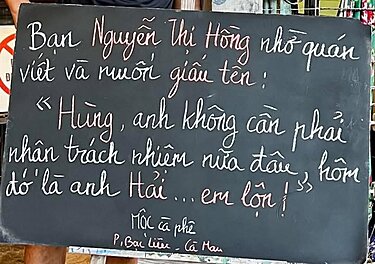 Bạn Nguyễn Thị Hồng nhờ quán
viết và muốn giấu tên:
"Hùng, anh không cần phải
nhân trách nhiệm nữa đâu, hôm
đó là anh Hải... em lộn!"
MỘC cà phê
P. Bạc Liêu - Cà Mau